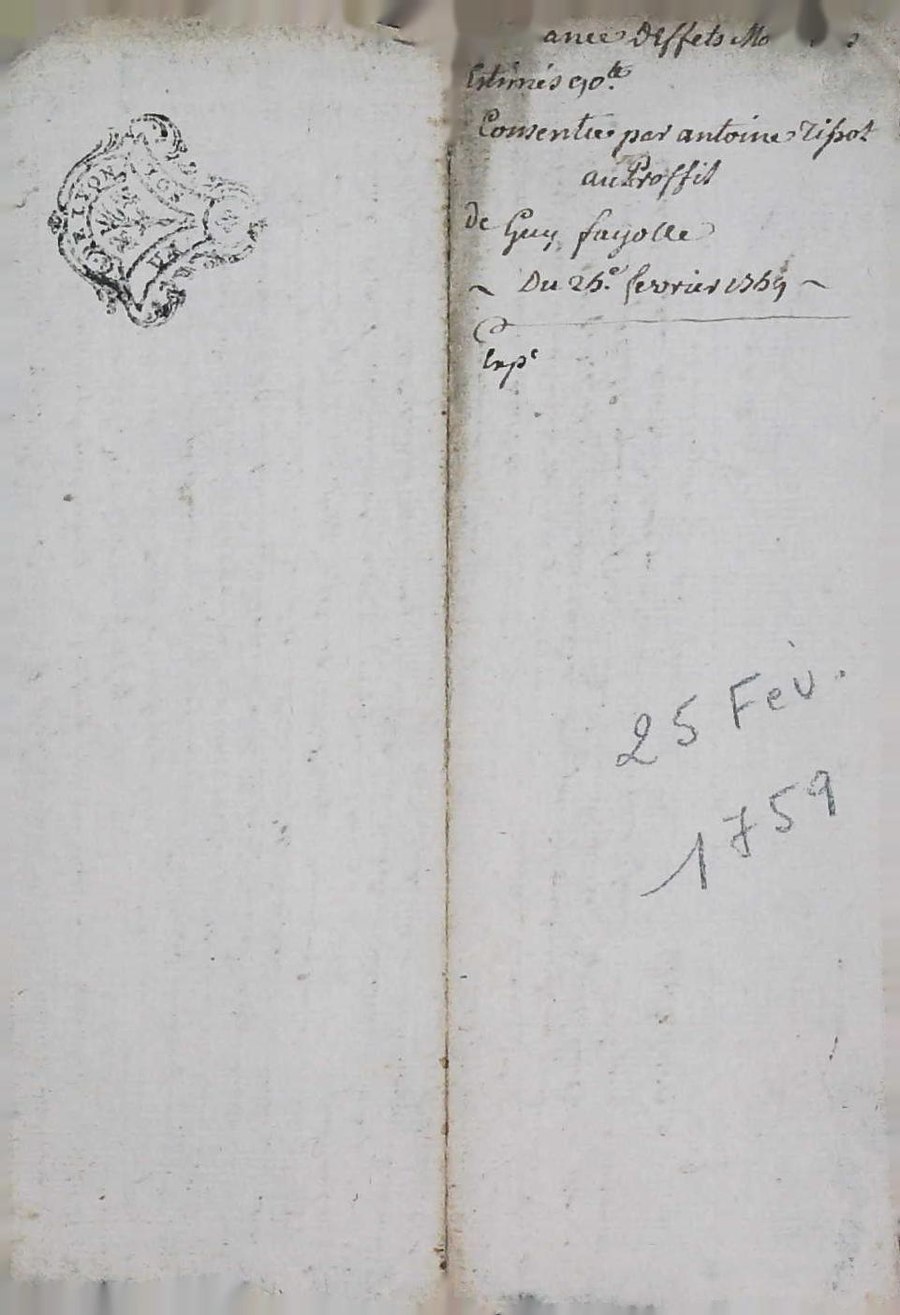 ance D'Effets Mo
Estimés 90.ᵗᵗ
Consentie par antoine Tipot
au Proffit
de Guy fayolle
~ Du 25.ᵉ fevrier 1759 ~
Expᵉ
25 Fèv.
1759
LYON